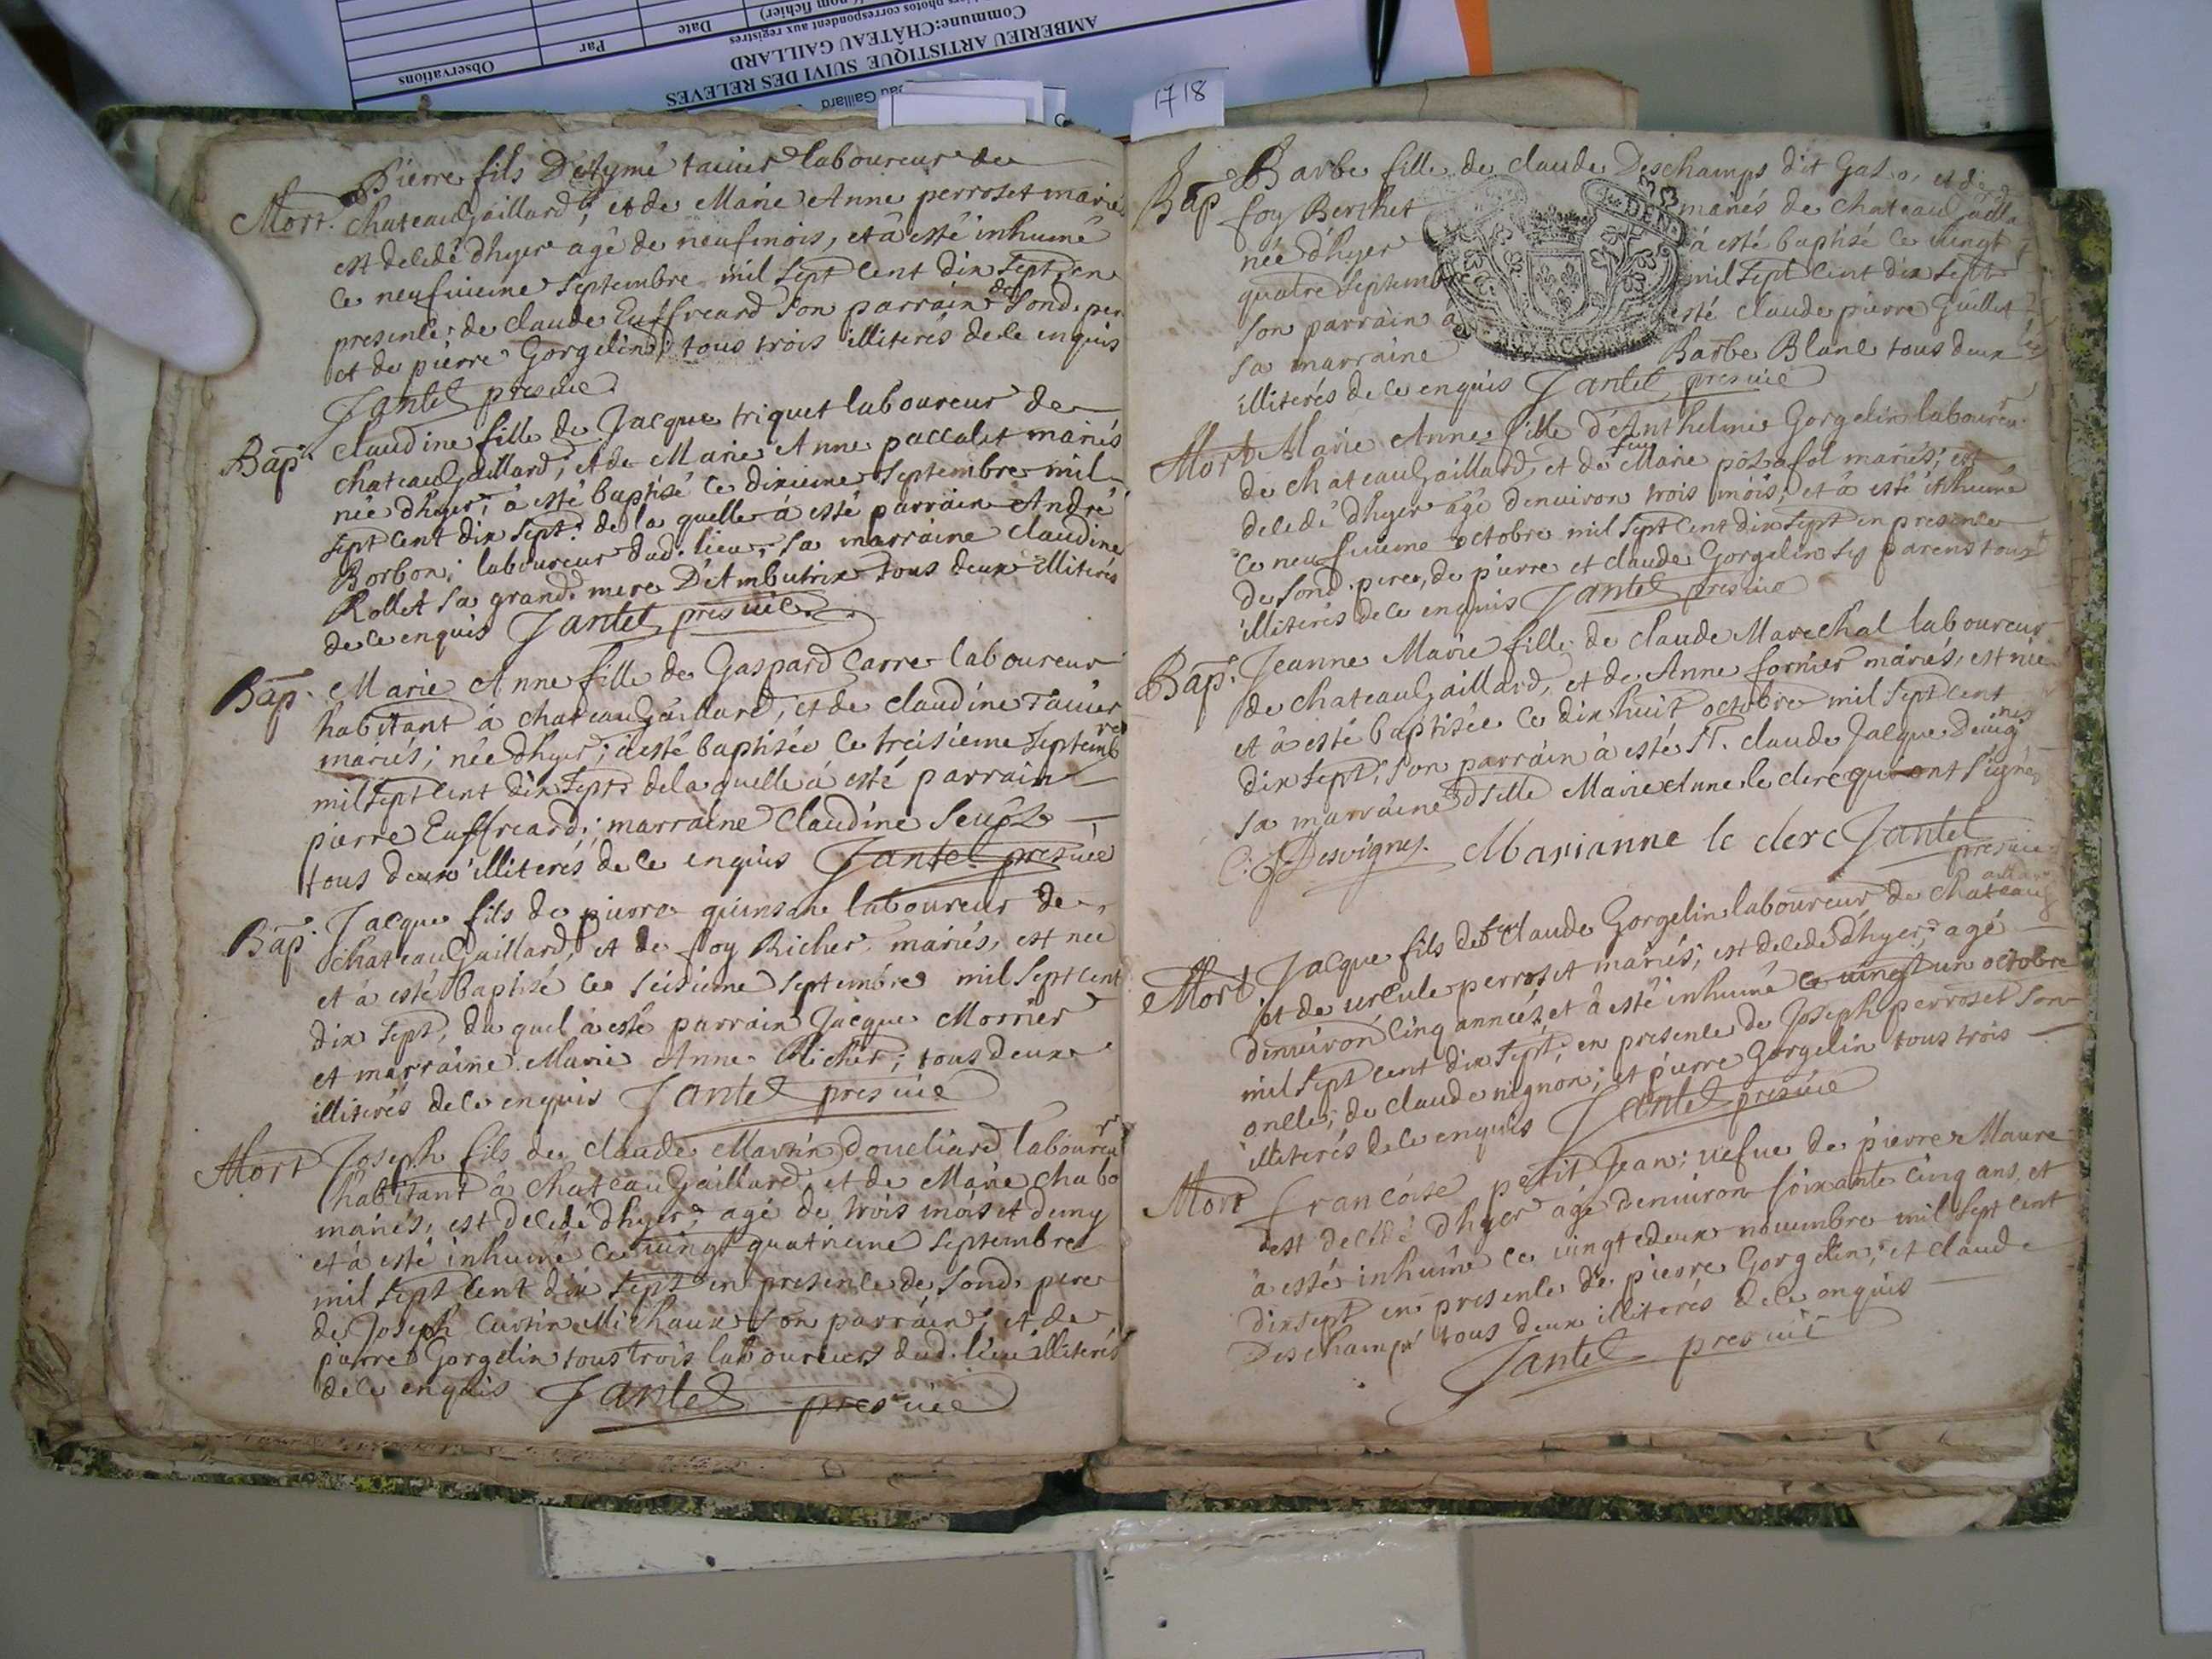 AMBERIEU ARTISTIQUE SUIVI DES RELEVES
Commune:CHÂTEAU GAILLARD
photos correspondent aux registres
Observations
Par
Date
nom fichier)
au Gaillard
1718
Mort.
Pierre fils D'Aymé tavier laboureur de
chateauGaillard, et de Marie Anne perroset mariés
est decedé dhyer agé de neuf mois, et a esté inhumé
ce neufvieme septembre mil sept cent dix sept en
presence de claude Euffreard son parrain de sond. per
et de pierre Gorgelin, tous trois illiterés de ce enquis
Jantet pres vic
Bap.
claudine fille de Jacque triquet laboureur de
chateauGaillard, et de Marie Anne paccalet mariés
née dhyer, à esté baptisé ce dixieme septembre mil
sept cent dix sept. de la quelle à esté parrain André
Borbon, laboureur dud. lieu, sa marraine claudine
Rollet sa grand mere D'Ambutrix tous deux illiterés
de ce enquis Jantet pres vic
Bap.
Marie Anne fille de Gaspard Carre laboureur
habitant à chateauGaillard, et de claudine Tavier
mariés; née dhyer; à esté baptisée ce treisieme septembre
mil sept cent dix sept. de la quelle à esté parrain
pierre Euffreard; marraine Claudine
tous deux illiterés de ce enquis Jantet pres vic
Bap.
Jacque fils de pierre quinsan laboureur de
chateauGaillard, et de foy Richer mariés, est née
et à esté baptisé ce seisieme septembre mil sept cent
dix sept, du quel à esté parrain Jacque Morrier
et marraine Marie Anne Richer; tous deux
illiterés de ce enquis Jantet pres vic
Mort
Joseph fils de claude Martin laboureur
habitant à chateauGaillard, et de Marie chabo
mariés, est decedé dhyer, agé de trois mois et demy
et à esté inhumé ce vingt quatrieme septembre
mil sept cent dix sept en presence de sond. pere
de Joseph Michaux son parrain, et de
pierre Gorgelin tous trois laboureurs dud. lieu illiterés
de ce enquis Jantet pres vic
Bap
Barbe fille de claude Deschamps dit et de
foy Berthet mariés de chateauGailla
née dhyer à esté baptisé ce vingt
quatre septemb mil sept cent dix sept
son parrain a esté claude pierre Guillet
sa marraine Barbe Blanc tous deux
illiterés de ce enquis Jantet pres vic
Mort
Marie Anne fille d'Anthelme Gorgelin laboureur
de chateauGaillard, et de feue Marie pozafol mariés, est
decedé dhyer agé denviron trois mois, et à esté inhumé
ce neufvieme octobre mil sept cent dix sept en presence
de sond. pere, de pierre et claude Gorgelin ses parens tous
illiterés de ce enquis Jantet pres vic
Bap.
Jeanne Marie fille de claude Marechal laboureur
de chateauGaillard, et de Anne fornier mariés, est née
et à esté baptisée ce dix huit octobre mil sept cent
dix sept, son parrain à esté Sr. claude Jacque Devignes
sa marraine dlle Marie Anne le clerc qui ont signés
C. J Desvignes. Marianne le clerc Jantet
pres vic
Mort
Jacque fils de feu claude Gorgelin laboureur de chateauGaillard
et de urcule perroset mariés, est decedé dhyer, agé
denviron cinq années, et à esté inhumé ce vingt un octobre
mil sept cent dix sept; en presence de Joseph perroset son
oncle, de claude nignon, et pierre Gorgelin tous trois
illiterés de ce enquis Jantet pres vic
Mort
francoise petit Jean, vefve de pierre Maure
est decedé dhyer agé denviron soixante cinq ans, et
à esté inhumé ce vingt deux novembre mil sept cent
dix sept en presence de pierre Gorgelin, et claude
Deschamps tous deux illiterés de ce enquis
Jantet pres vic